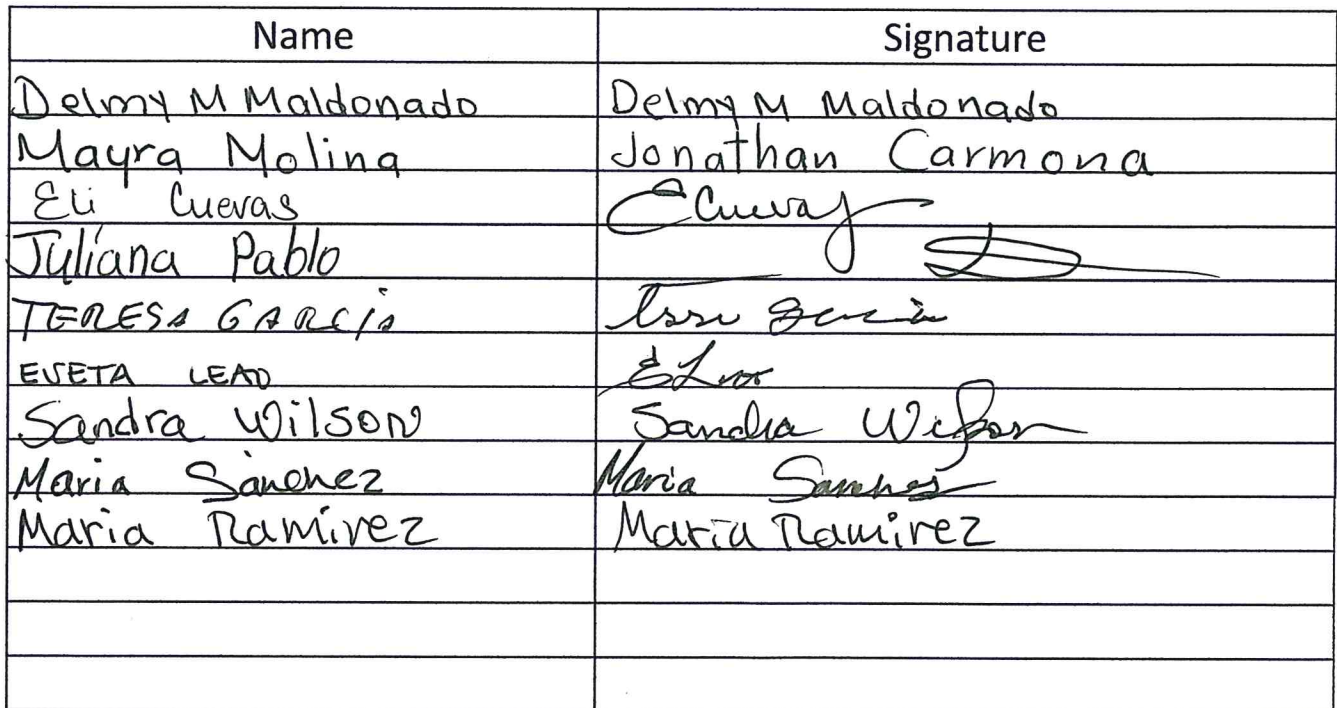 Name Signature
Delmy M Maldonado Delmy M Maldonado
Mayra Molina Jonathan Carmona
Eli Cuevas ECuevas
Juliana Pablo
TERESA GARCIA
LEAD
Sandra Wilson Sandra Wilson
Maria Sanchez Maria Sanches
Maria Ramirez Maria Ramirez